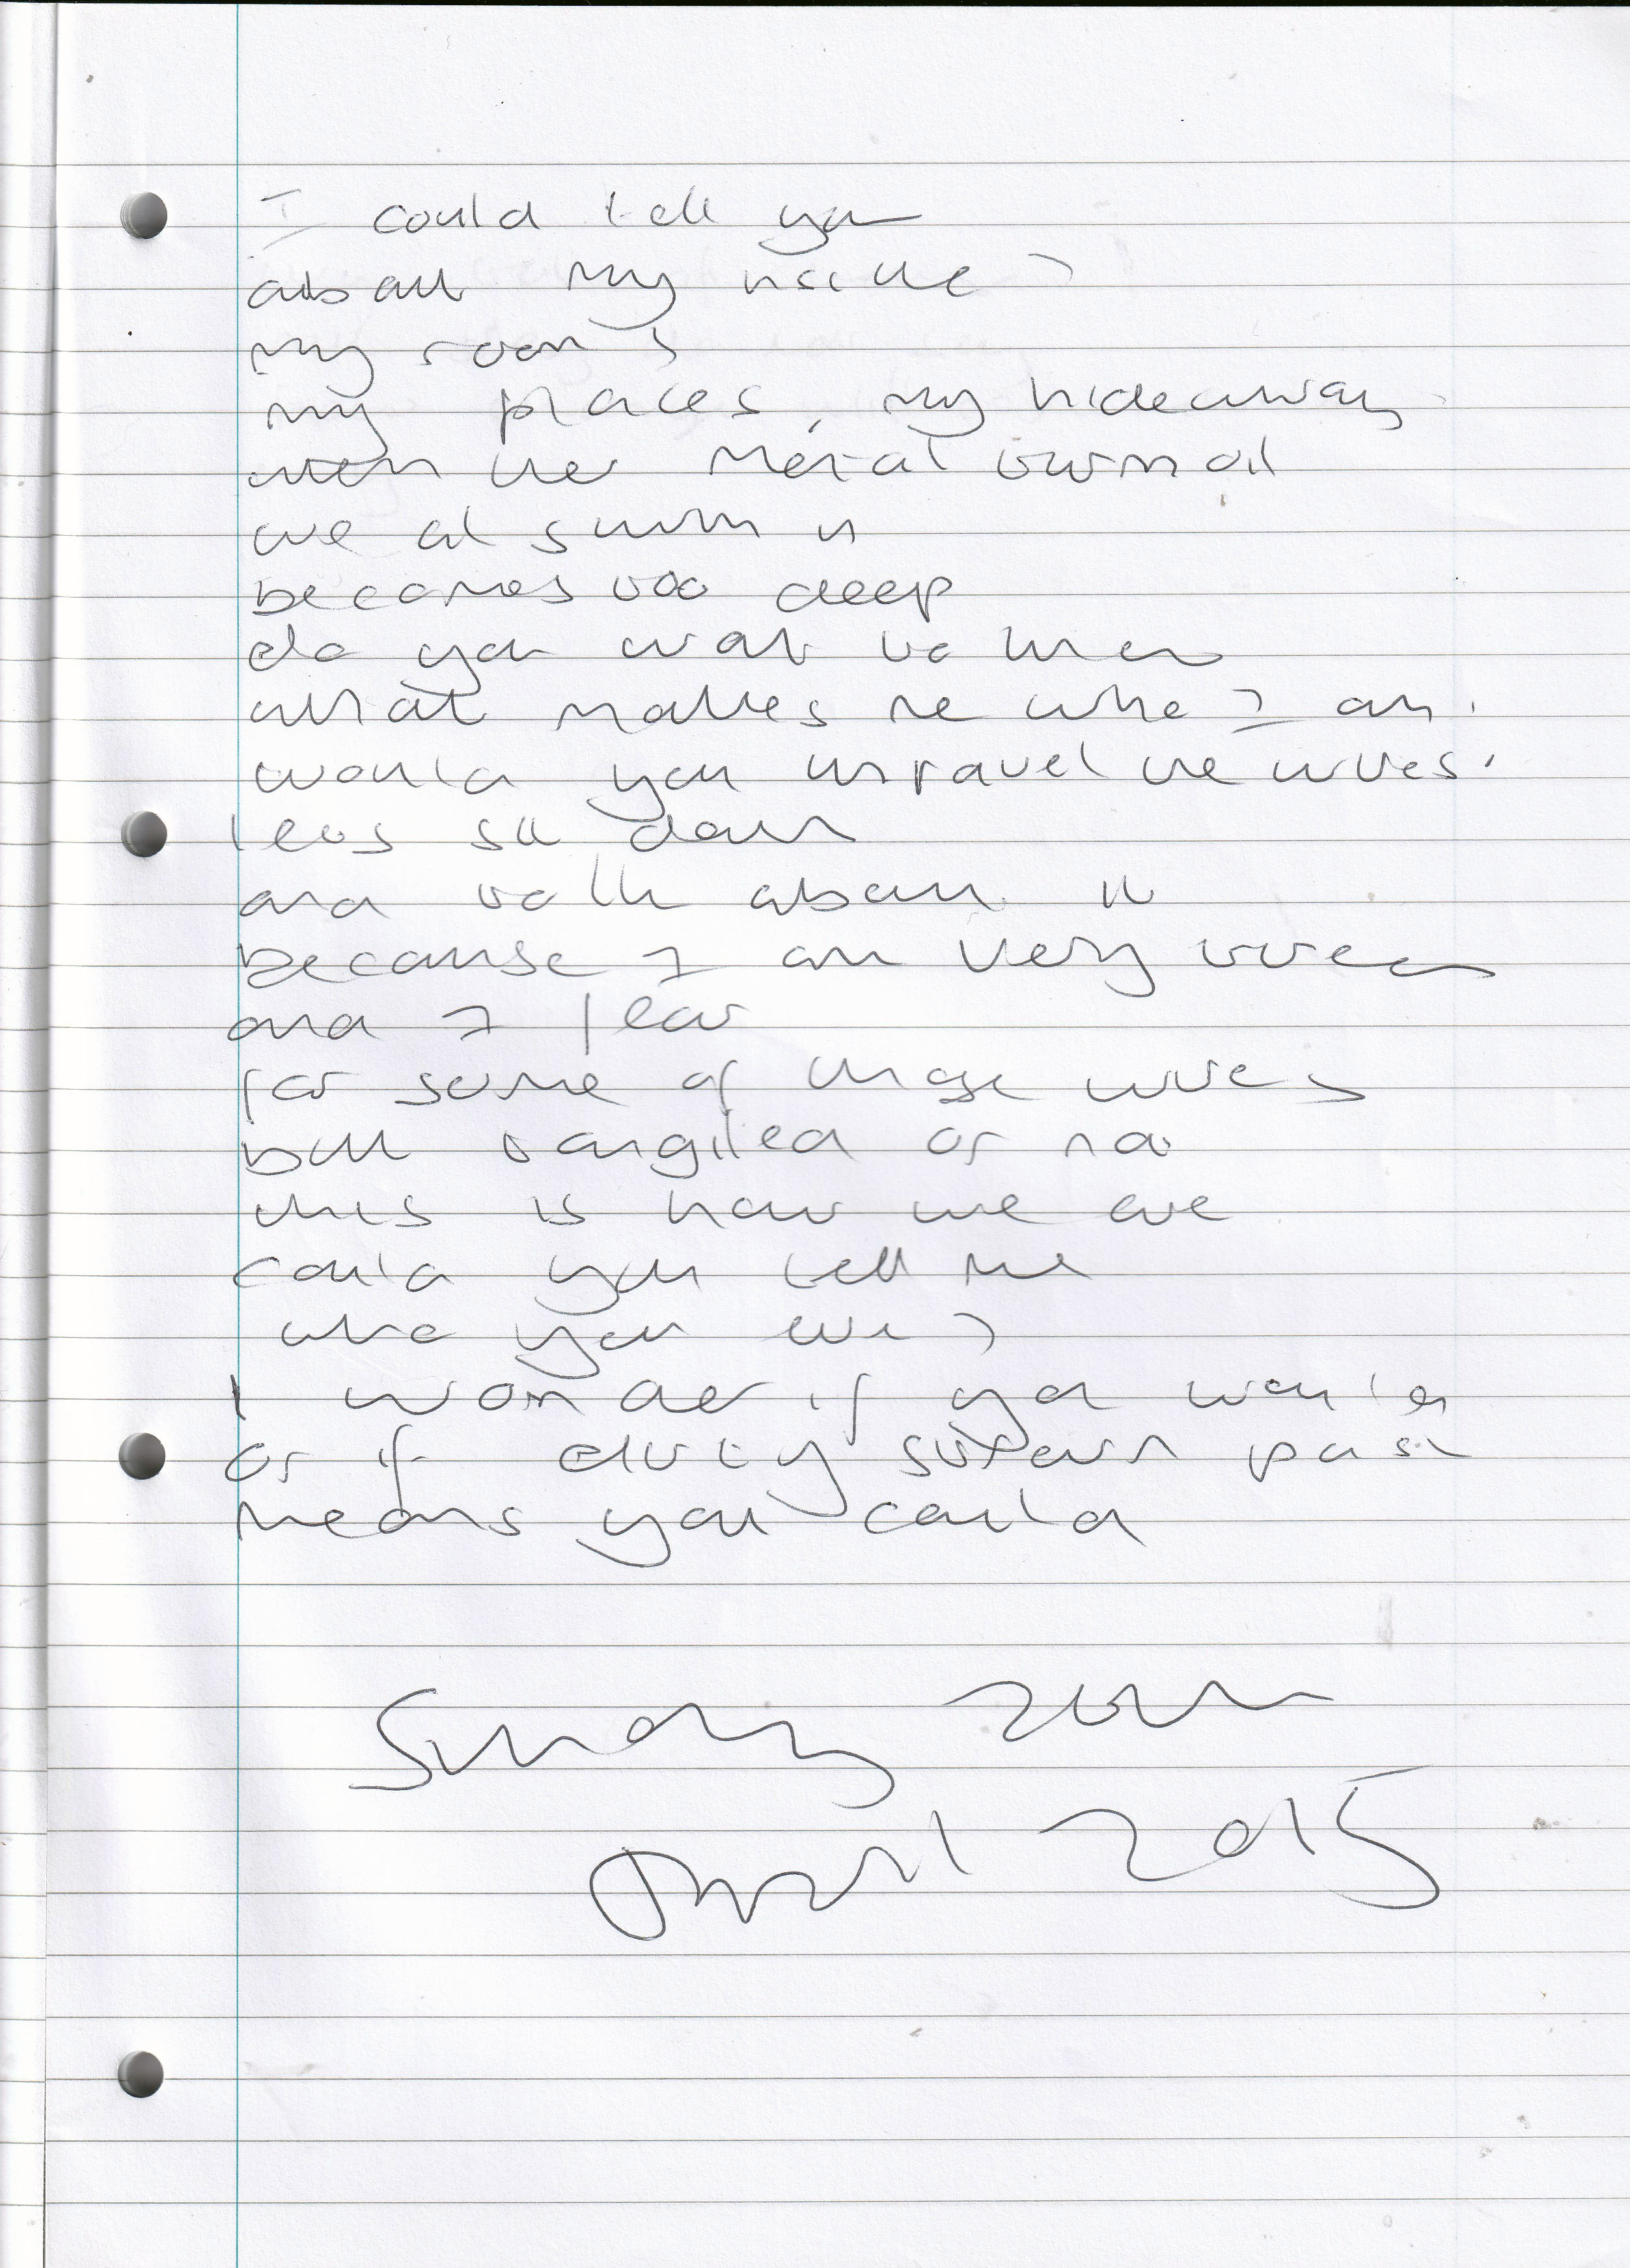 I could tell you
about my inside
my rooms
my places, my hideaway
when the metal turmoil
we all swim in
becomes too deep
do you want to know
what makes me who I am.
would you unravel the wires.
lets sit down
and talk about it
because I am very tired
and I fear
for some of those wires
but tangiled or not
this is how we are
could you tell me
who you are?
I wonder if you would
or if duty sworn past
means you could
Sunday 20th
April 2015